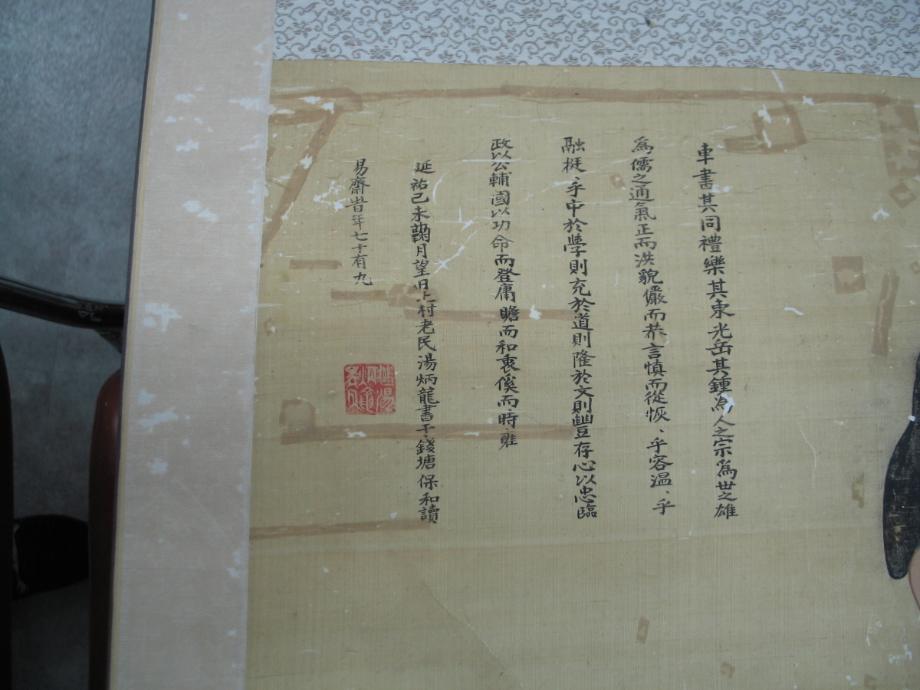 車書其同禮樂其東光岳其鍾為人之宗為世之雄
為儒之通氣正而洪貌儼而恭言慎而從恢、乎容溫、乎
融挺、乎中於學則充於道則隆於文則豐存心以忠臨
政以公輔國以功命而登庸瞻而和衷傒而時雍
延祐己未月望日村老民湯炳龍書于錢塘保和讀
易齋昔年七十有九